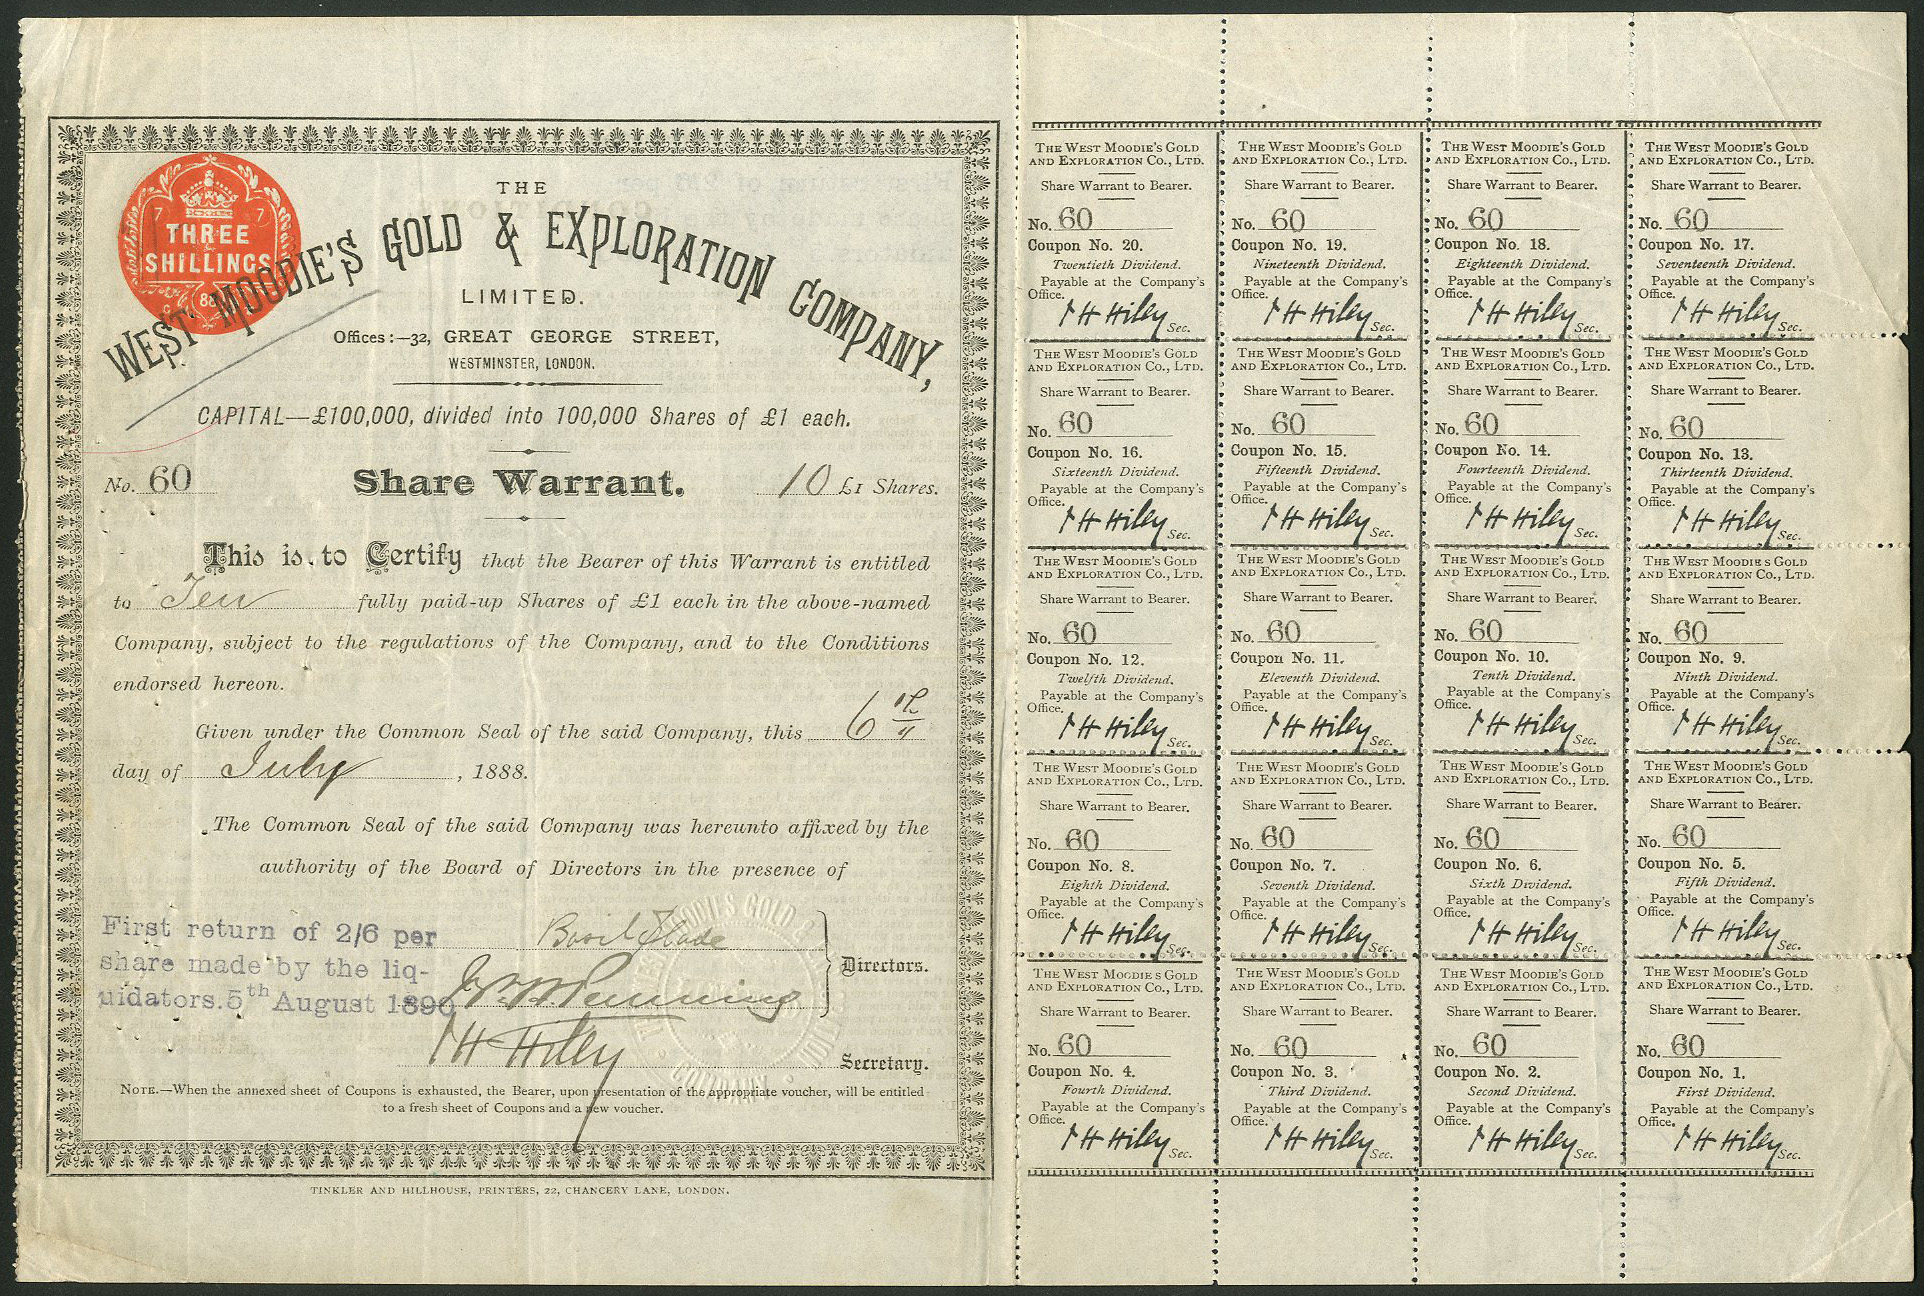 7 7
THREE
SHILLINGS
88
THE
WEST MOODIE'S GOLD & EXPLORATION COMPANY,
LIMITED.
Offices:—32, GREAT GEORGE STREET,
WESTMINSTER, LONDON.
CAPITAL—£100,000, divided into 100,000 Shares of £1 each.
No. 60 Share Warrant. 10 £1 Shares.
This is to Certify that the Bearer of this Warrant is entitled
to Ten fully paid-up Shares of £1 each in the above-named
Company, subject to the regulations of the Company, and to the Conditions
endorsed hereon.
Given under the Common Seal of the said Company, this 6th
day of July, 1888.
The Common Seal of the said Company was hereunto affixed by the
authority of the Board of Directors in the presence of
First return of 2/6 per
share made by the liq-
uidators. 5th August 1890
Basil Slade
Directors.
H Hiley
Secretary.
NOTE.—When the annexed sheet of Coupons is exhausted, the Bearer, upon presentation of the appropriate voucher, will be entitled
to a fresh sheet of Coupons and a new voucher.
TINKLER AND HILLHOUSE, PRINTERS, 22, CHANCERY LANE, LONDON.
THE WEST MOODIE'S GOLD
AND EXPLORATION CO., LTD.
Share Warrant to Bearer.
No. 60
Coupon No. 20.
Twentieth Dividend.
Payable at the Company's
Office.
H Hiley Sec.
THE WEST MOODIE'S GOLD
AND EXPLORATION CO., LTD.
Share Warrant to Bearer.
No. 60
Coupon No. 19.
Nineteenth Dividend.
Payable at the Company's
Office.
H Hiley Sec.
THE WEST MOODIE'S GOLD
AND EXPLORATION CO., LTD.
Share Warrant to Bearer.
No. 60
Coupon No. 18.
Eighteenth Dividend.
Payable at the Company's
Office.
H Hiley Sec.
THE WEST MOODIE'S GOLD
AND EXPLORATION CO., LTD.
Share Warrant to Bearer.
No. 60
Coupon No. 17.
Seventeenth Dividend.
Payable at the Company's
Office.
H Hiley Sec.
THE WEST MOODIE'S GOLD
AND EXPLORATION CO., LTD.
Share Warrant to Bearer.
No. 60
Coupon No. 16.
Sixteenth Dividend.
Payable at the Company's
Office.
H Hiley Sec.
THE WEST MOODIE'S GOLD
AND EXPLORATION CO., LTD.
Share Warrant to Bearer.
No. 60
Coupon No. 15.
Fifteenth Dividend.
Payable at the Company's
Office.
H Hiley Sec.
THE WEST MOODIE'S GOLD
AND EXPLORATION CO., LTD.
Share Warrant to Bearer.
No. 60
Coupon No. 14.
Fourteenth Dividend.
Payable at the Company's
Office.
H Hiley Sec.
THE WEST MOODIE'S GOLD
AND EXPLORATION CO., LTD.
Share Warrant to Bearer.
No. 60
Coupon No. 13.
Thirteenth Dividend.
Payable at the Company's
Office.
H Hiley Sec.
THE WEST MOODIE'S GOLD
AND EXPLORATION CO., LTD.
Share Warrant to Bearer.
No. 60
Coupon No. 12.
Twelfth Dividend.
Payable at the Company's
Office.
H Hiley Sec.
THE WEST MOODIE'S GOLD
AND EXPLORATION CO., LTD.
Share Warrant to Bearer.
No. 60
Coupon No. 11.
Eleventh Dividend.
Payable at the Company's
Office.
H Hiley Sec.
THE WEST MOODIE'S GOLD
AND EXPLORATION CO., LTD.
Share Warrant to Bearer.
No. 60
Coupon No. 10.
Tenth Dividend.
Payable at the Company's
Office.
H Hiley Sec.
THE WEST MOODIE'S GOLD
AND EXPLORATION CO., LTD.
Share Warrant to Bearer.
No. 60
Coupon No. 9.
Ninth Dividend.
Payable at the Company's
Office.
H Hiley Sec.
THE WEST MOODIE'S GOLD
AND EXPLORATION CO., LTD.
Share Warrant to Bearer.
No. 60
Coupon No. 8.
Eighth Dividend.
Payable at the Company's
Office.
H Hiley Sec.
THE WEST MOODIE'S GOLD
AND EXPLORATION CO., LTD.
Share Warrant to Bearer.
No. 60
Coupon No. 7.
Seventh Dividend.
Payable at the Company's
Office.
H Hiley Sec.
THE WEST MOODIE'S GOLD
AND EXPLORATION CO., LTD.
Share Warrant to Bearer.
No. 60
Coupon No. 6.
Sixth Dividend.
Payable at the Company's
Office.
H Hiley Sec.
THE WEST MOODIE'S GOLD
AND EXPLORATION CO., LTD.
Share Warrant to Bearer.
No. 60
Coupon No. 5.
Fifth Dividend.
Payable at the Company's
Office.
H Hiley Sec.
THE WEST MOODIE'S GOLD
AND EXPLORATION CO., LTD.
Share Warrant to Bearer.
No. 60
Coupon No. 4.
Fourth Dividend.
Payable at the Company's
Office.
H Hiley Sec.
THE WEST MOODIE'S GOLD
AND EXPLORATION CO., LTD.
Share Warrant to Bearer.
No. 60
Coupon No. 3.
Third Dividend.
Payable at the Company's
Office.
H Hiley Sec.
THE WEST MOODIE'S GOLD
AND EXPLORATION CO., LTD.
Share Warrant to Bearer.
No. 60
Coupon No. 2.
Second Dividend.
Payable at the Company's
Office.
H Hiley Sec.
THE WEST MOODIE'S GOLD
AND EXPLORATION CO., LTD.
Share Warrant to Bearer.
No. 60
Coupon No. 1.
First Dividend.
Payable at the Company's
Office.
H Hiley Sec.